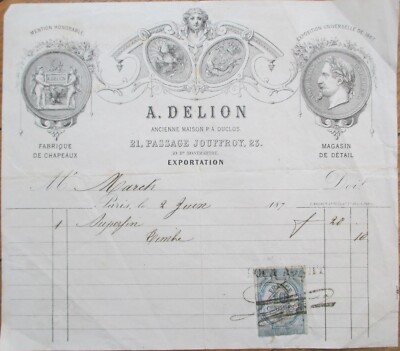 MENTION HONORABLE
EXPOSITION UNIVERSELLE DE 1867
A. DELION
ANCIENNE MAISON P. A. DUCLOS
21, PASSAGE JOUFFROY, 23.
EXPORTATION
FABRIQUE
DE CHAPEAUX
MAGASIN
DE DÉTAIL
Mr March Doit
Paris, le 2 Juin 187
1 Superfin f 22
Timbre 10